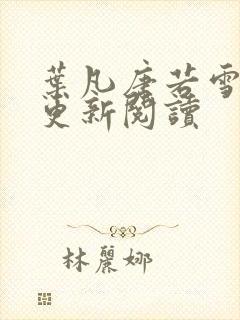 葉凡唐若雪
更新閱讀
林麗娜